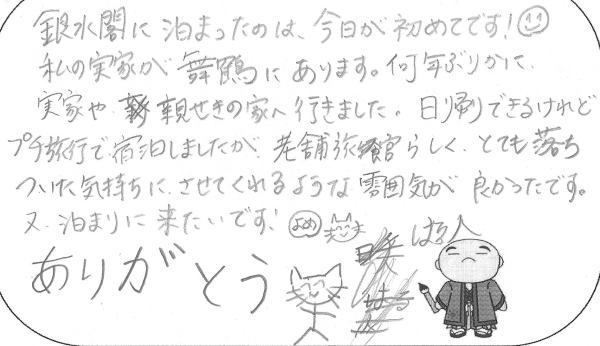 銀水閣に泊まったのは、今日が初めてです!
私の実家が舞鶴にあります。何年ぶりかに、
実家や親せきの家へ行きました。日帰りできるけれど
プチ旅行で宿泊しましたが、老舗旅館らしく、とても落ち
ついた気持ちに、させてくれるような雰囲気が良かったです。
又、泊まりに来たいです!よめ
ありがとう